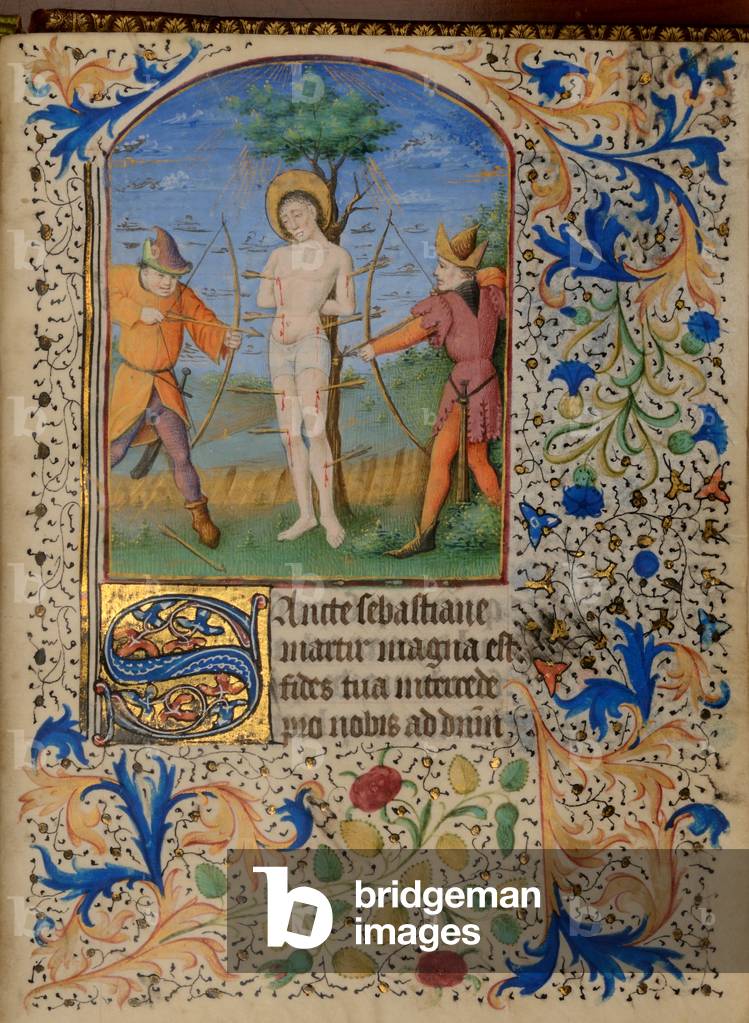 Sancte sebastiane
martir magna est
fides tua intercede
pro nobis ad dnm
b bridgeman
images